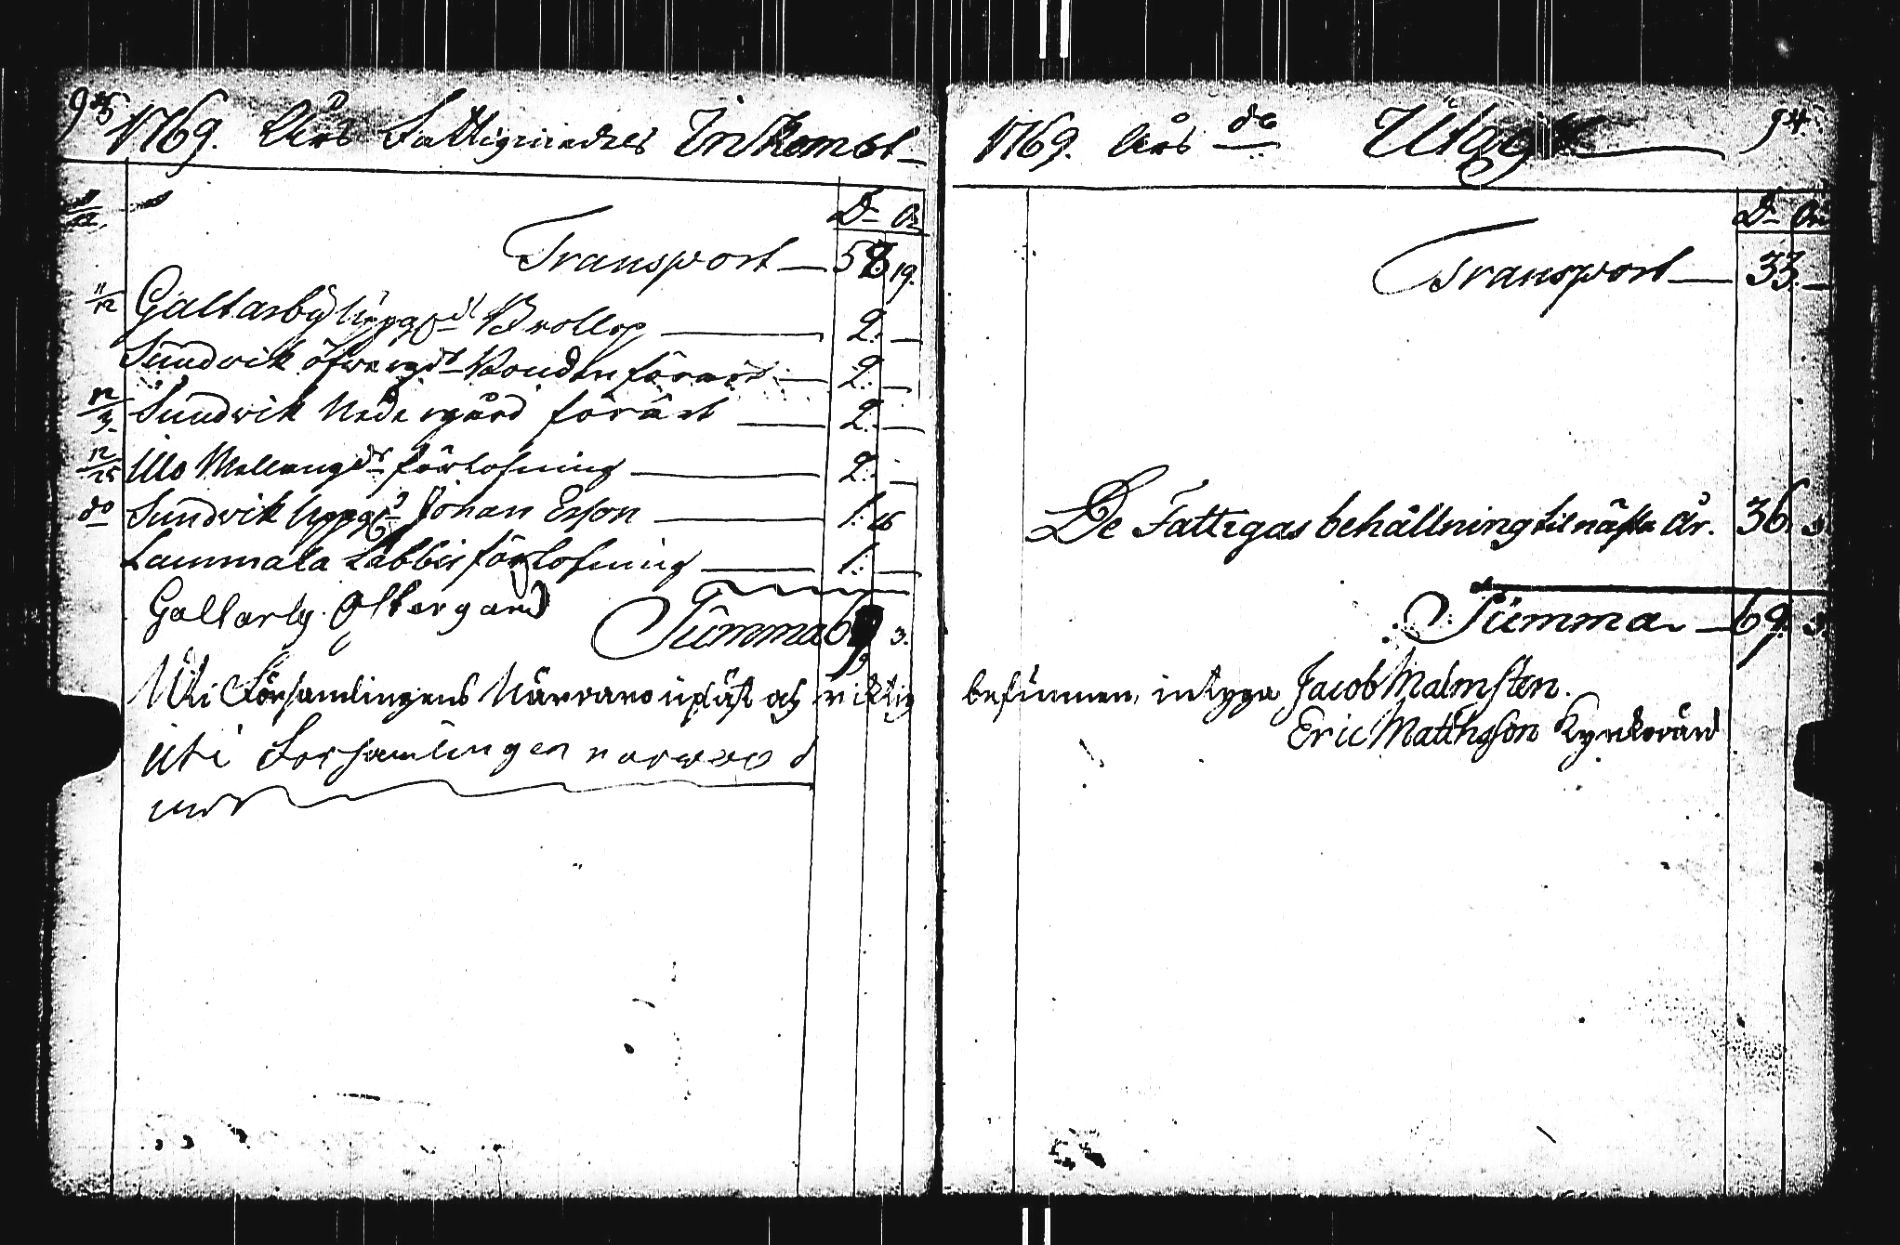 1769. Års Fattigmedels Inkomst
D. Ör
Transport — 58 19.
11/12 Galtarby Uppg:d Bröllop — 2. —
Sundvik öfverg:d Bonden förärt — 2. —
12/3. Sundvik Nedergård förärt — 2. —
12/25 Ulo Mellangd förlofning — 2. —
do Sundvik Uppg:d Johan Ersson — 1: 16
Lammala Labbis förlofning — 1. —
Galtarby Östergård
Summa 69 3.
Uti Församlingens Närvaro upläst och riktig
uti Forsamlingen narvaro
1769. Års do Utgift
94.
D. Ör
Transport — 33. —
De Fattigas behållning til näste År. 36. 3.
Summa — 69. 3.
befunnen, intyga Jacob Malmsten.
Eric Matthsson Kyrckovärd